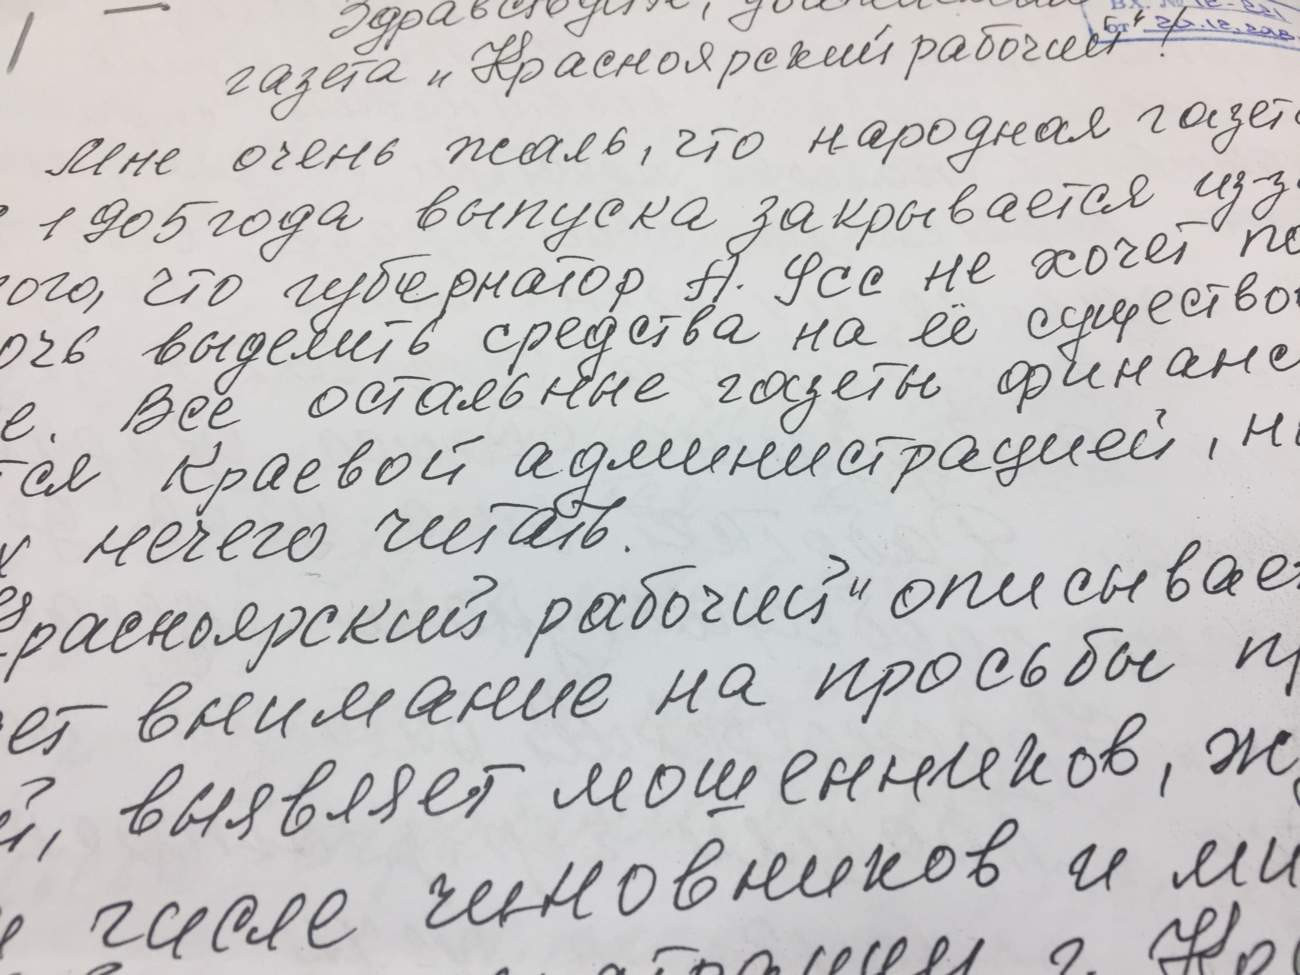 Здравствуйте,
газета „Красноярский рабочий"!
Мне очень жаль, что народная газета
1905 года выпуска закрывается из-за
того, что губернатор А. Усс не хочет по
мочь выделить средства на её существо
е. Все остальные газеты финанс
тся краевой администрацией, но
х нечего читать.
Красноярский рабочий" описывает
ет внимание на просьбы
й, выявляет мошенников,
числе чиновников и ми
г. Кр